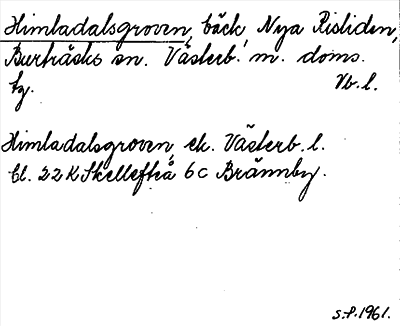 Himladalsgroven, bäck, Nya Risliden,
Burträsks sn. Västerb. m. doms.
tg. Vb. l.
Himladalsgroven, ek. Västerb. l.
bl. 22K Skellefteå 6c Brännby.
S.P. 1961.